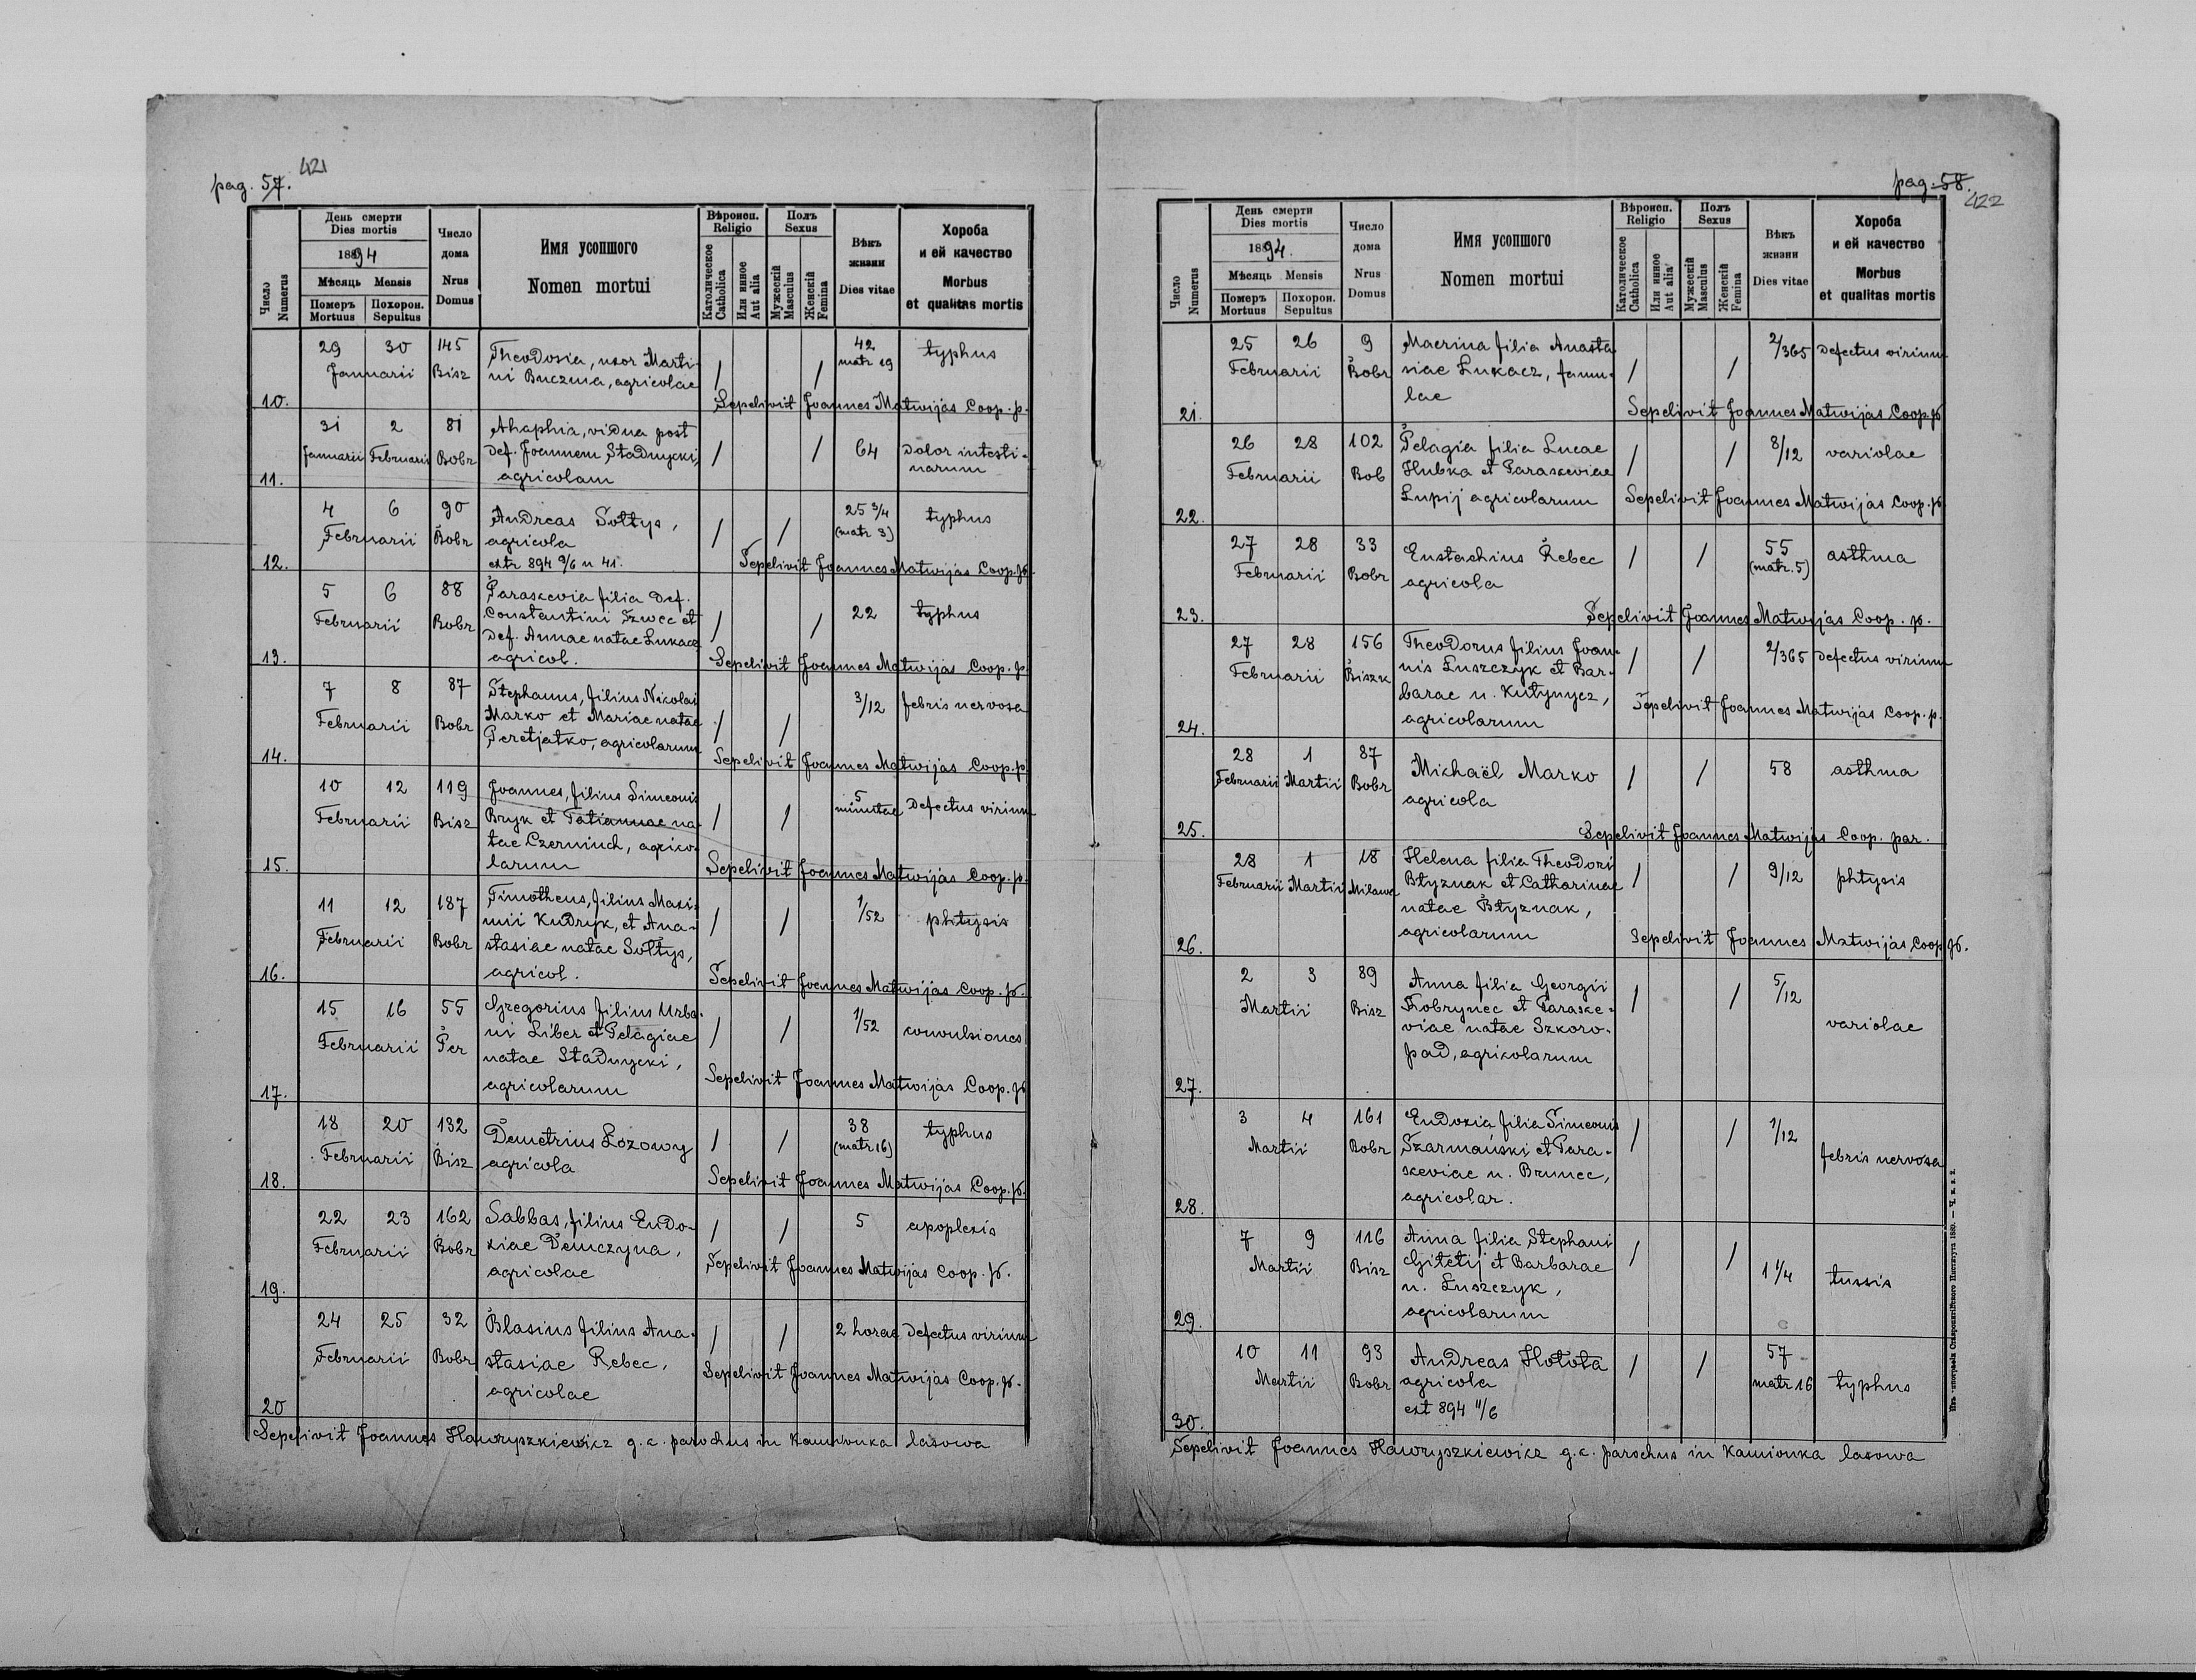 pag. 57. 421
День смерти
Dies mortis
1894
Мѣсяць Mensis
Померъ Похорон.
Mortuus Sepultus
Число
Numerus
Число
дома
Nrus
Domus
Имя усопшого
Nomen mortui
Вѣроисп.
Religio
Католическое
Catholica
Или инное
Aut alia
Полъ
Sexus
Мужескій
Masculus
Женскій
Femina
Вѣкъ
жизни
Dies vitae
Хороба
и ей качество
Morbus
et qualitas mortis
29 30 145 Theodosia, uxor Marti- 42 typhus
Januarii Bisz ni Buczma, agricolae / / matr 19
10. Sepelivit Joannes Matwijas Coop. p.
31 2 81 Ahaphia, vidua post
Januarii Februarii Bobr def. Joannem Stadnycki, / / 64 dolor intesti-
11. agricolam narum
4 6 90 Andreas Sołtys, 25 3/4 typhus
Februarii Bobr agricola / / (matr 3)
12. extr 894 9/6 n 41. Sepelivit Joannes Matwijas Coop. p.
5 6 88 Paraskevia filia def.
Februarii Bobr Constantini Szwec et / / 22 typhus
def. Annae natae Lukacz
13. agricol. Sepelivit Joannes Matwijas Coop. p.
7 8 87 Stephanus, filius Nicolai 3/12 febris nervosa
Februarii Bobr Marko et Mariae natae / /
Peretjatko, agricolarum
14. Sepelivit Joannes Matwijas Coop. p.
10 12 119 Joannes, filius Simeonis 5
Februarii Bisz Bryk et Tatiannae na- / / minutae defectus virium
tae Czerniuch, agrico-
15. larum Sepelivit Joannes Matwijas Coop. p.
11 12 187 Timotheus, filius Maxi- 1/52
Februarii Bobr mii Kudryk, et Ana- / / phtysis
stasiae natae Sołtys,
16. agricol. Sepelivit Joannes Matwijas Coop. p.
15 16 55 Gregorius filius Urba- 1/52
Februarii Per ni Liber et Pelagiae / / convulsiones
natae Stadnycki,
17. agricolarum Sepelivit Joannes Matwijas Coop. p.
18 20 132 Demetrius Łozowy / / 38 typhus
Februarii Bisz agricola (matr 16)
18. Sepelivit Joannes Matwijas Coop. p.
22 23 162 Sabbas, filius Eudo- / / 5 apoplexis
Februarii Bobr xiae Demczyna,
19. agricolae Sepelivit Joannes Matwijas Coop. p.
24 25 32 Blasius filius Ana- / / 2 horae defectus virium
Februarii Bobr stasiae Rebec,
20 agricolae Sepelivit Joannes Matwijas Coop. p.
Sepelivit Joannes Hawryszkiewicz g. c. parochus in Kamionka lasowa
pag. 58. 422
День смерти
Dies mortis
1894.
Мѣсяць Mensis
Померъ Похорон.
Mortuus Sepultus
Число
Numerus
Число
дома
Nrus
Domus
Имя усопшого
Nomen mortui
Вѣроисп.
Religio
Католическое
Catholica
Или инное
Aut alia
Полъ
Sexus
Мужескій
Masculus
Женскій
Femina
Вѣкъ
жизни
Dies vitae
Хороба
и ей качество
Morbus
et qualitas mortis
25 26 9 Macrina filia Anasta- 2/365 defectus virium
Februarii Bobr siae Lukacz, famu- / /
lae
21. Sepelivit Joannes Matwijas Coop. p.
26 28 102 Pelagia filia Lucae 8/12 variolae
Februarii Bob Hubka et Paraskeviae / /
Lupij agricolarum Sepelivit Joannes Matwijas Coop. p.
22.
27 28 33 Eustachius Rebec / / 55 asthma
Februarii Bobr agricola (matr. 5)
23. Sepelivit Joannes Matwijas Coop. p.
27 28 156 Theodorus filius Joan- 2/365 defectus virium
Februarii Biszk nis Luszczyk et Bar- / /
barae n. Kutynycz,
24. agricolarum Sepelivit Joannes Matwijas Coop. p.
28 1 87 Michaël Marko / / 58 asthma
Februarii Martii Bobr agricola
25. Sepelivit Joannes Matwijas Coop. par.
28 1 18 Helena filia Theodori
Februarii Martii Milawa Btyznak et Catharinae / / 9/12 phtysis
natae Btyznak,
26. agricolarum Sepelivit Joannes Matwijas Coop. p.
2 3 89 Anna filia Georgii 5/12
Martii Bisz Kobrynec et Paraske- / /
viae natae Szkoro- variolae
pad, agricolarum
27.
3 4 161 Eudoxia filia Simeonis 1/12
Martii Bobr Szarmański et Para- / /
skeviae n. Brunec, febris nervosa
28. agricolar.
7 9 116 Anna filia Stephani
Martii Bisz Gitetij et Barbarae / / 1 1/4 tussis
n. Luszczyk,
29. agricolarum
10 11 93 Andreas Hołota / / 57
Martii Bobr agricola matr 16 typhus
30. ext 894 11/6
Sepelivit Joannes Hawryszkiewicz g. c. parochus in Kamionka lasowa